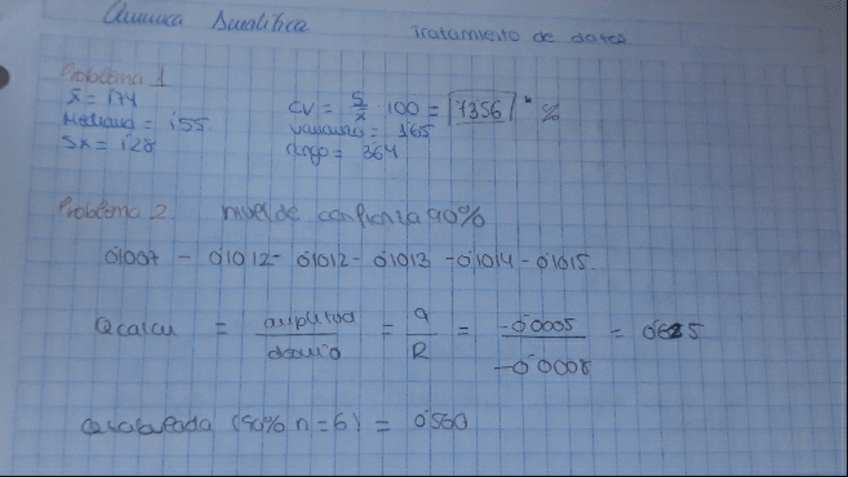 Química Analítica Tratamiento de datos
Problema 1
x̄ = 1'74
Mediana = 1'55
Sx = 1'28
CV = S/x̄ · 100 = 7356 %
varianza = 1'65
rango = 3'64
Problema 2 nivel de confianza 90%
0'1007 - 0'1012 - 0'1012 - 0'1013 - 0'1014 - 0'1015
Qcalcu = amplitud/desvío = q/R = -0'0005/-0'0008 = 0'625
Qtabulada (90% n=6) = 0'560